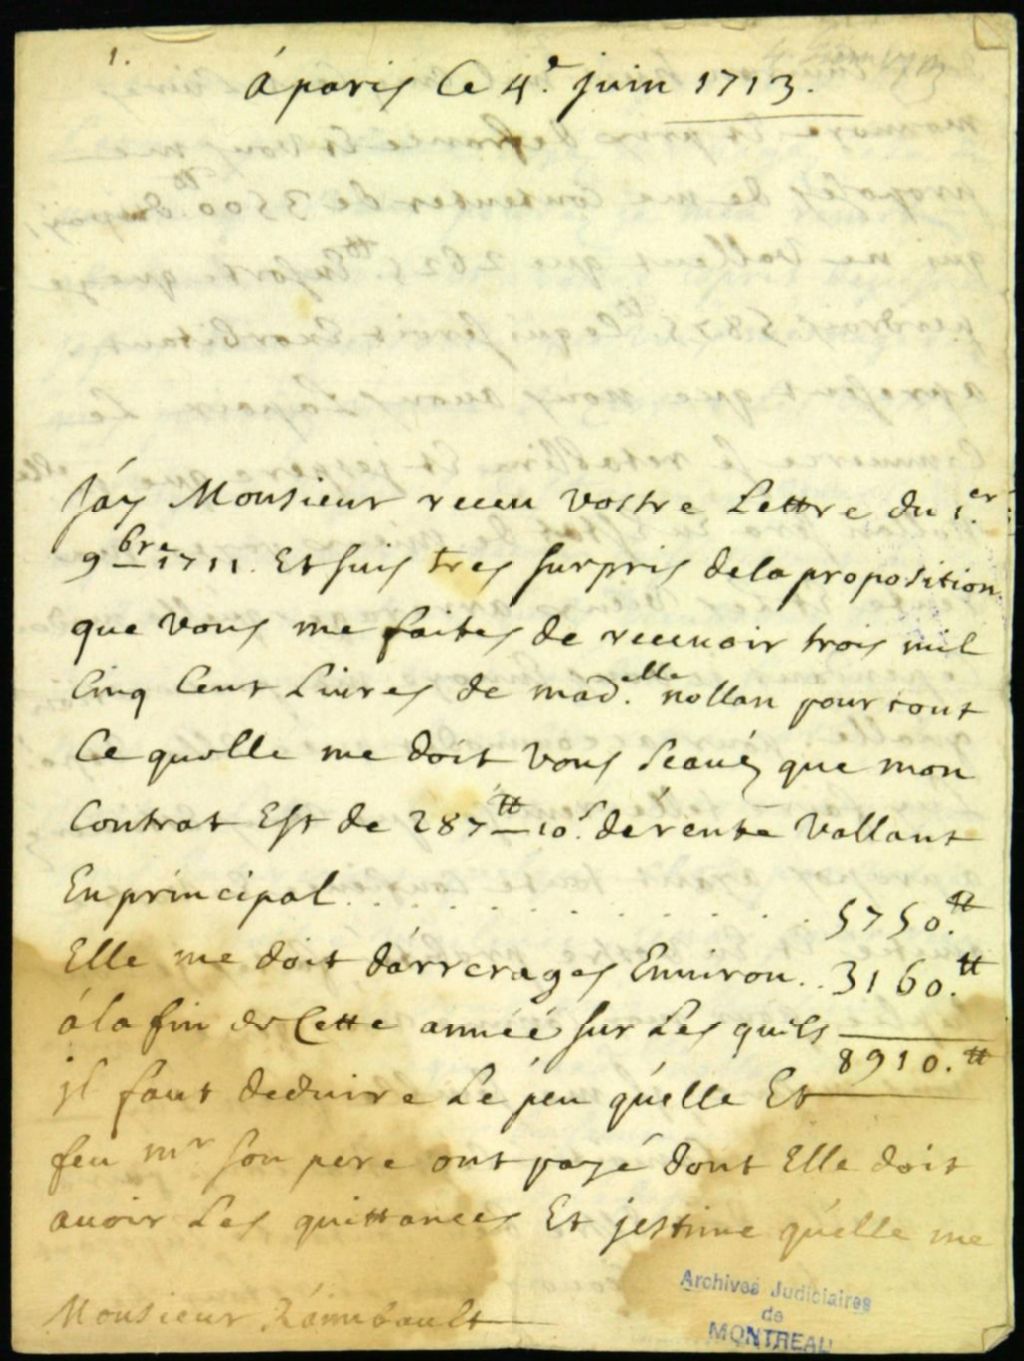 1.
á paris Ce 4.e juin 1713.
J'ay Monsieur receu vostre Lettre du 1.er
9bre 1711. Et suis tres surpris de la proposition
que vous me faites de receuoir trois mil
Cinq Cent Liures de mad.elle nollan pour tout
Ce quelle me doit vous scaués que mon
Contrat Est de 287tt 10s. de rente Vallant
En principal. . . . . . . . . . . 5750.tt
Elle me doit d'arrerages Enuiron.. 3160.tt
á la fin de Cette année sur Les quils
8910.tt
jl faut deduire Le peu qu'elle Et
feu mr son pere ont payé dont Elle doit
auoir Les quittances Et jestime qu'elle me
Monsieur Raimbault
Archives Judiciaires
de
MONTREAL